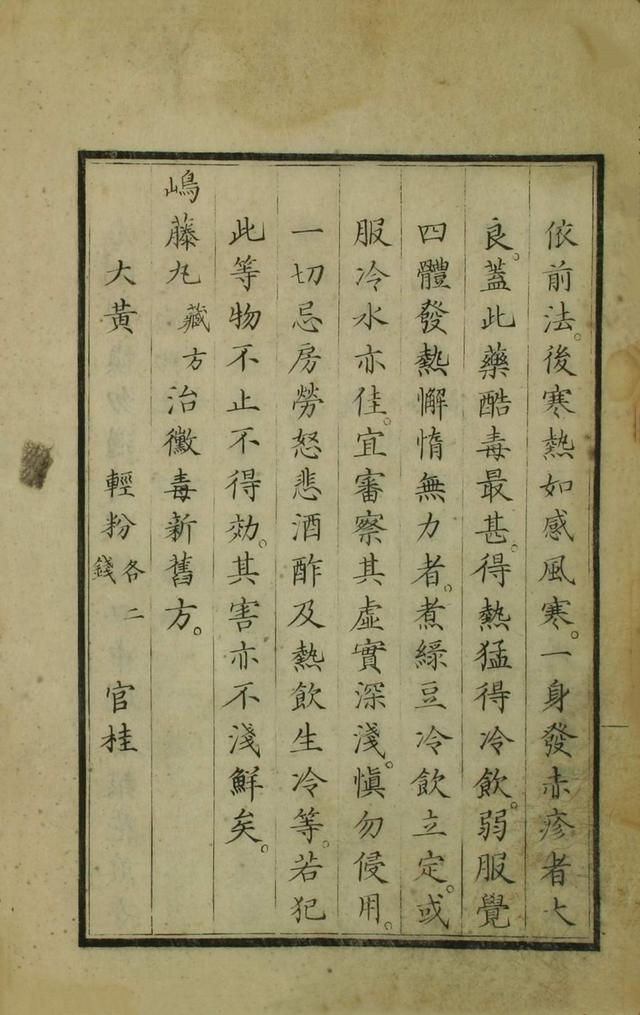 依前法。後寒熱如感風寒。一身發赤疹者大
良。蓋此藥酷毒最甚。得熱猛得冷飲。弱服覺
四體發熱懈惰無力者。煮綠豆冷飲立定。或
服冷水亦佳。宜審察其虛實深淺。愼勿侵用。
一切忌房勞怒悲酒酢及熱飲生冷等。若犯
此等物不止不得効。其害亦不淺鮮矣。
嶋藤丸藏方治黴毒新舊方。
大黃 輕粉各二錢 官桂